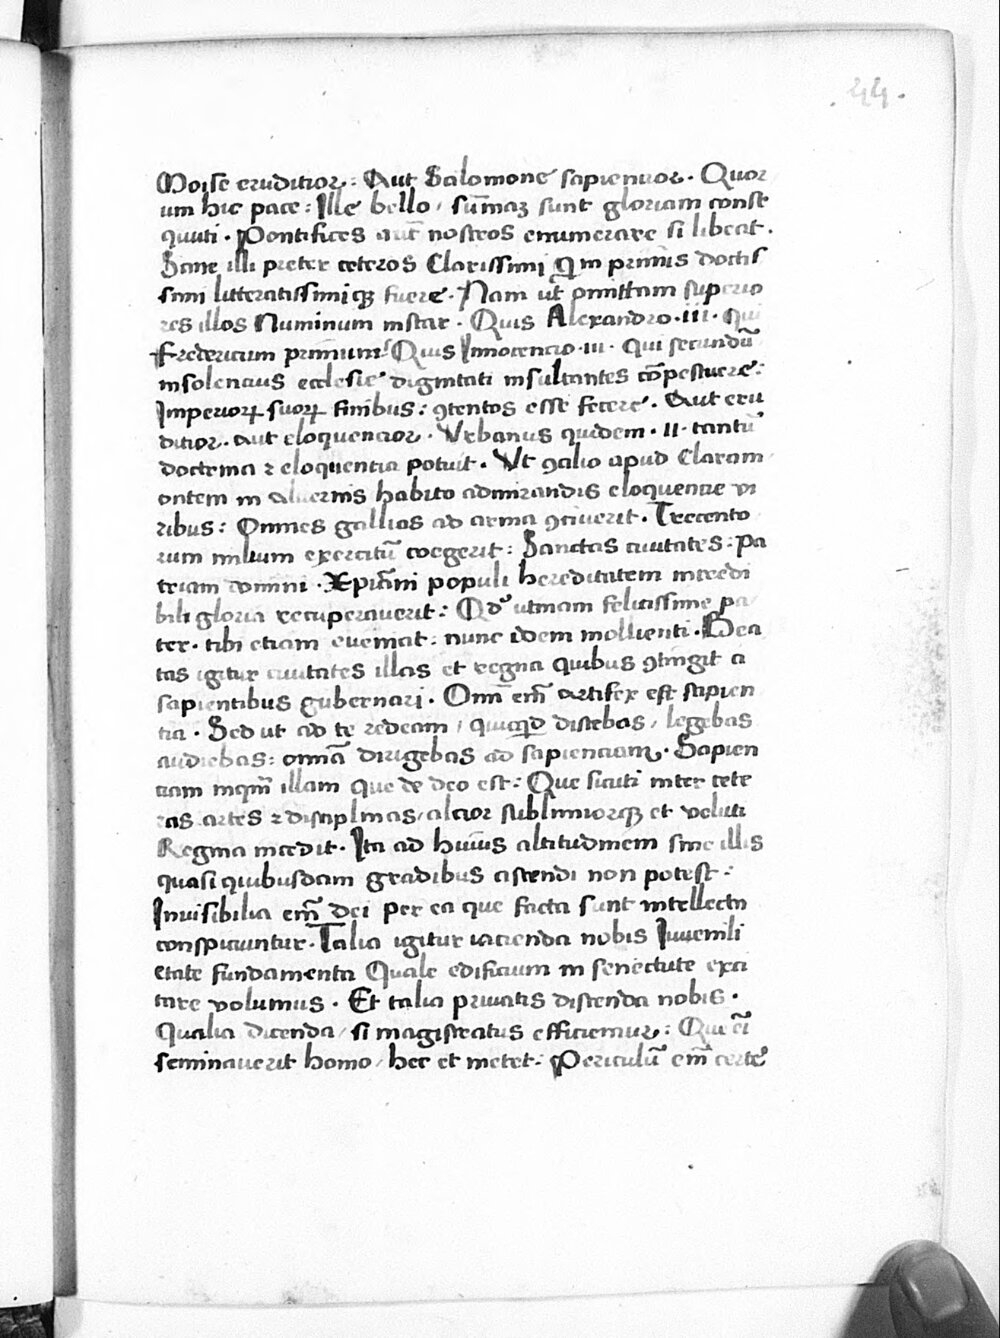 .44.
Moise eruditior: Aut Salomone sapientior. Quor
um hic pace: Ille bello, sum̄aꝫ sunt gloriam conse
quuti. Pontifices aut̄ nostros enumerare si libeat.
Sane illi preter ceteros Clarissimi Qm primis doctis
simi litteratissimiqꝫ fuere. Nam ut omittam superio
res illos Numinum instar. Quis Alexandro .iii. qui
Fredericum primum? Quis Innocencio .iii. qui secundū
insolencius ecclesie dignitati insultantes cōpescuere:
Imperioꝝ suoꝝ finibus: ꝯtentos esse fecere. Aut eru
ditior. aut eloquencior. Urbanus quidem .II. tantū
doctrina ⁊ eloquentia potuit. Ut ꝯcilio apud Claram
ontem in alvernis habito admirandis eloquentie vi
ribus: Omnes gallias ad arma ꝯciverit. Trecento
rum milium exercitū coegerit: Sanctas civitates: pa
triam domini. Xpiāni populi hereditatem incredi
bili gloria recuperaverit: Qdˀ utinam felicissime pa
ter. tibi etiam eveniat: nunc idem mollienti. Bea
tas igitur civitates illas et regna quibus ꝯtingit a
sapientibus gubernari. Omī em̄ artifex est sapien
tia. Sed ut ad te redeam, quicqd discebas, legebas
audiebas: omnīa dirigebas ad sapienciam. Sapien
ciam inqm̄ illam que de deo est: Que sicuti inter cete
ras artes ⁊ disciplinas, alcior sublimiorqꝫ et veluti
Regina incedit. Ita ad huiūs altitudinem sine illis
quasi quibusdam gradibus ascendi non potest:
Invisibilia em̄ dei per ea que facta sunt intellecta
conspiciuntur. Talia igitur iacienda nobis Iuvenili
etate fundamenta Quale edificium in senectute exci
tare volumus. Et talia privatis discenda nobis.
Qualia dicenda, si magistratus efficiemur: Que ei̅
seminaverit homo, hec et metet: Periculū em̄ certe